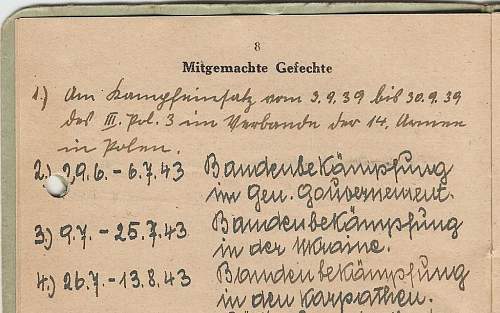 8
Mitgemachte Gefechte
1.) Am Kampfeinsatz vom 3.9.39 bis 30.9.39
des III. Pol. 3 im Verbande der 14. Armee
in Polen.
2.) 29.6. - 6.7.43 Bandenbekämpfung
im Gen. Gouvernement.
3.) 9.7. - 25.7.43 Bandenbekämpfung
in der Ukraine.
4.) 26.7. - 13.8.43 Bandenbekämpfung
in den Karpathen.